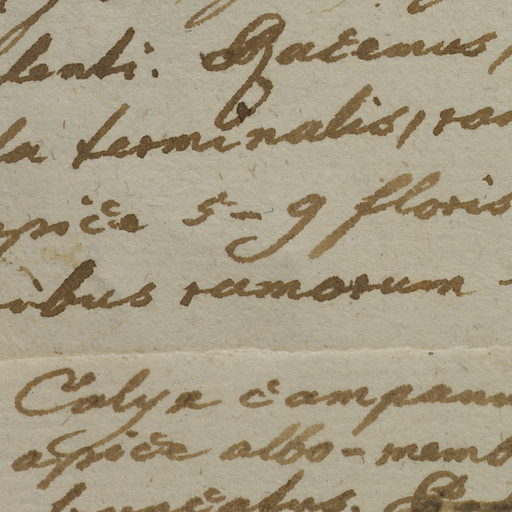 lenti. Racemus,
la terminalis, ra
apice 5-9 floris
ibus ramorum
Calyx campanu
apice albo-memb
truncatus.